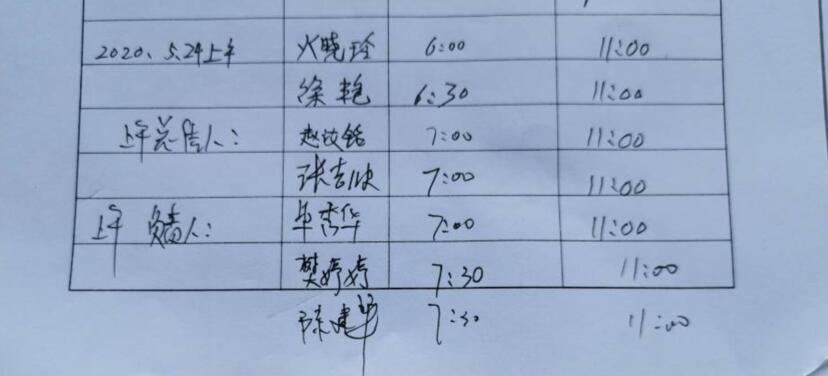 2020、5.24上午 火晓玲 6:00 11:00
徐艳 6:30 11:00
上午 人: 赵 7:00 11:00
张吉 7:00 11:00
上午 负责人: 华 7:00 11:00
樊婷婷 7:30 11:00
陈建华 7:30 11:00